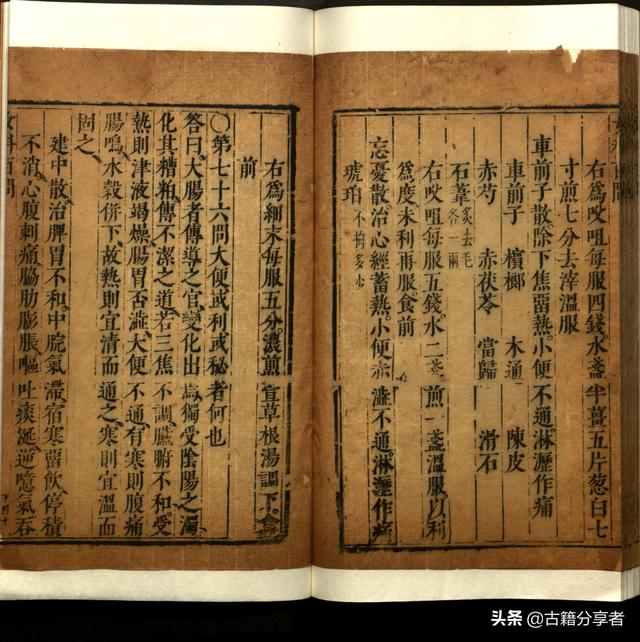 右爲㕮咀每服四錢水盞半薑五片葱白七
寸煎七分去滓溫服
車前子散除下焦畱熱小便不通淋瀝作痛
車前子 檳榔 木通 陳皮
赤芍 赤茯苓 當歸 滑石
石葦炙去毛各一兩
右㕮咀每服五錢水二盞煎一盞溫服以利
爲度未利再服食前
忘憂散治心經蓄熱小便赤澁不通淋瀝作痛
琥珀不拘多少
右爲細末每服五分濃煎萱草根湯調下食
前
〇第七十六問大便或利或秘者何也
答曰大腸者傳導之官變化出焉獨受陰陽之濁
化其糟粕傳不潔之道若三焦不調臟腑不和受
熱則津液竭燥腸胃否澁大便不通有寒則腹痛
腸鳴水穀併下故熱則宜清而通之寒則宜溫而
固之
建中散治脾胃不和中脘氣滯宿寒畱飲停積
不消心腹刺痛脇肋膨脹嘔吐痰涎逆噫氣吞
女科百問
下四十
头条 @古籍分享者